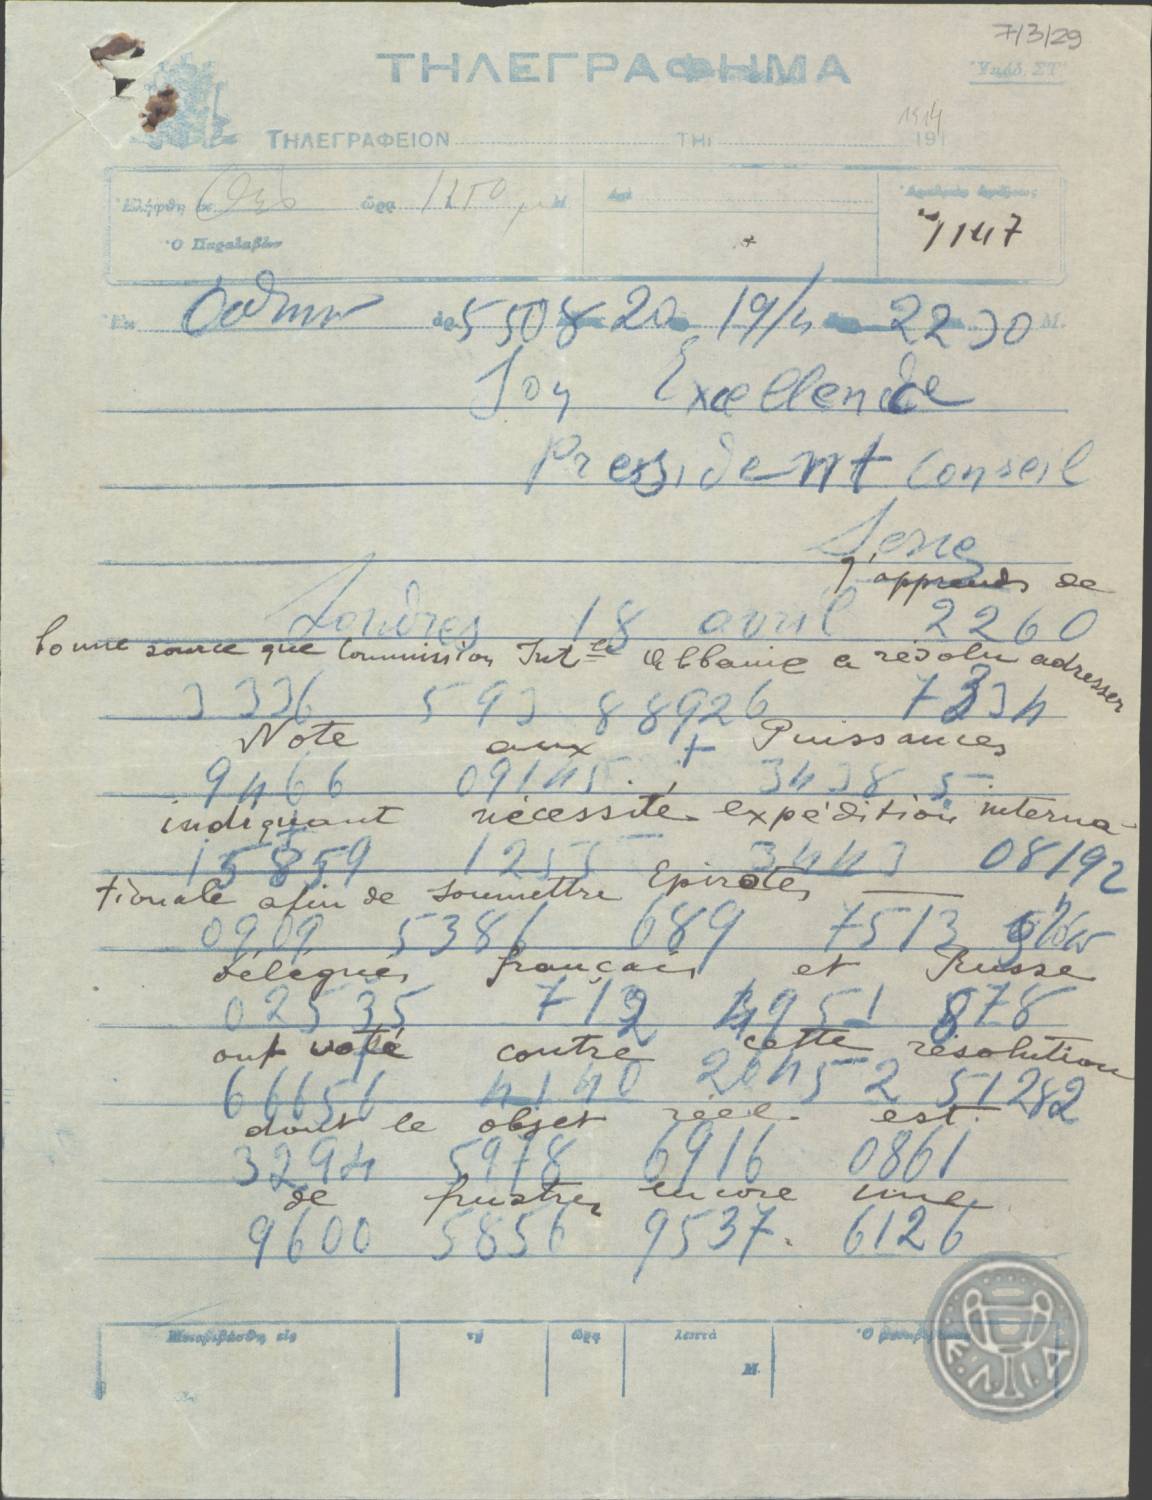 7/3/29
ΤΗΛΕΓΡΑΦΗΜΑ
Ὑπόδ. ΣΤ'
1914
ΤΗΛΕΓΡΑΦΕΙΟΝ ΤΗι 191
Ἐλήφθη ἐκ ὥρα 1250 μ Μ
Ἀπὸ
Ὁ Παραλαβὼν
1147
Ἐκ ἀρ. 5508 20 19/4 2230 Μ.
Son Excellence
President Conseil
J'apprends de
Londres 18 avril 2260
bonne source que Commission Intle Albanie a résolu adresser
3336 593 88926 7334
Note aux + Puissances
9466 09145 34385
indiquant nécessité expédition interna-
15859 1255 3443 08192
tionale afin de soumettre Epirotes
0909 5386 689 7513
délégués français et Russe
02535 712 4951 878
ont voté contre cette résolution
66656 4140 20452 51282
dont le objet réel est
3294 5978 6916 0861
de frustrer encore une
9600 5856 9537. 6126
Μετεβιβάσθη εἰς τῇ ὥρᾳ λεπτὰ
Μ.
Ε.Λ.Ι.Α